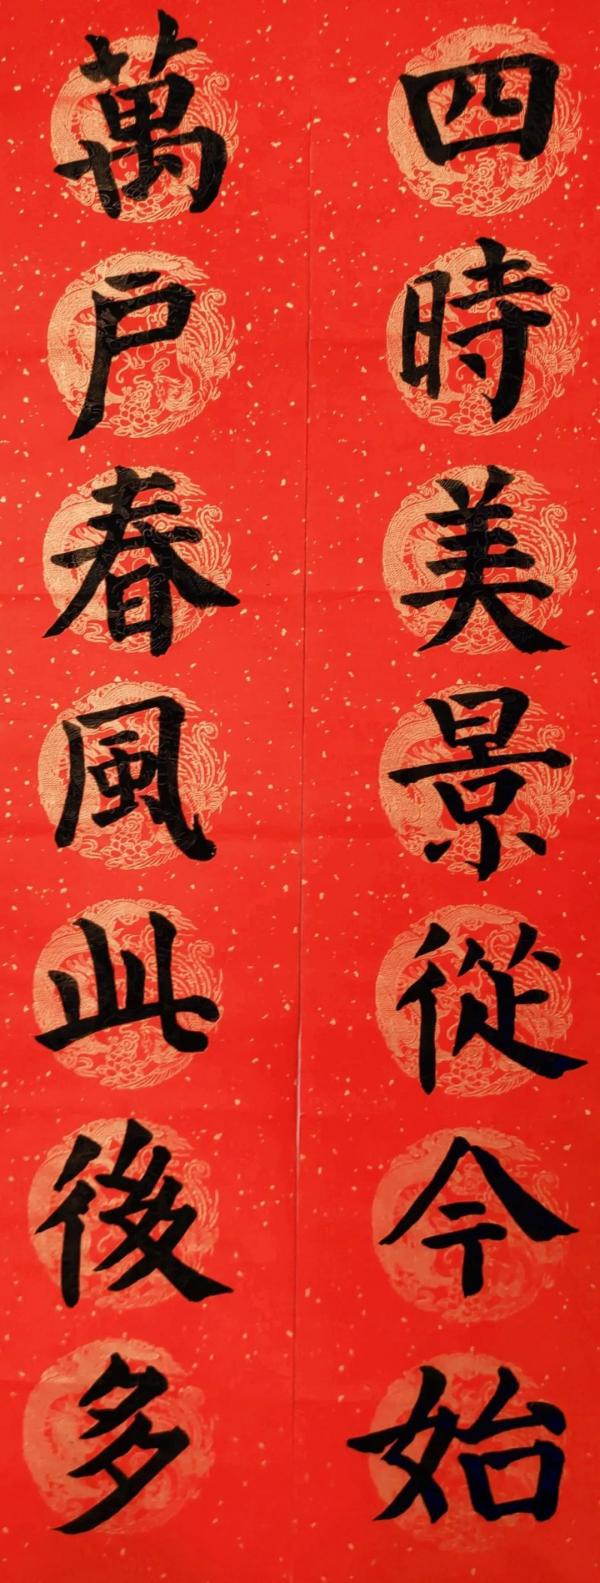 四時美景從今始
萬户春風此後多